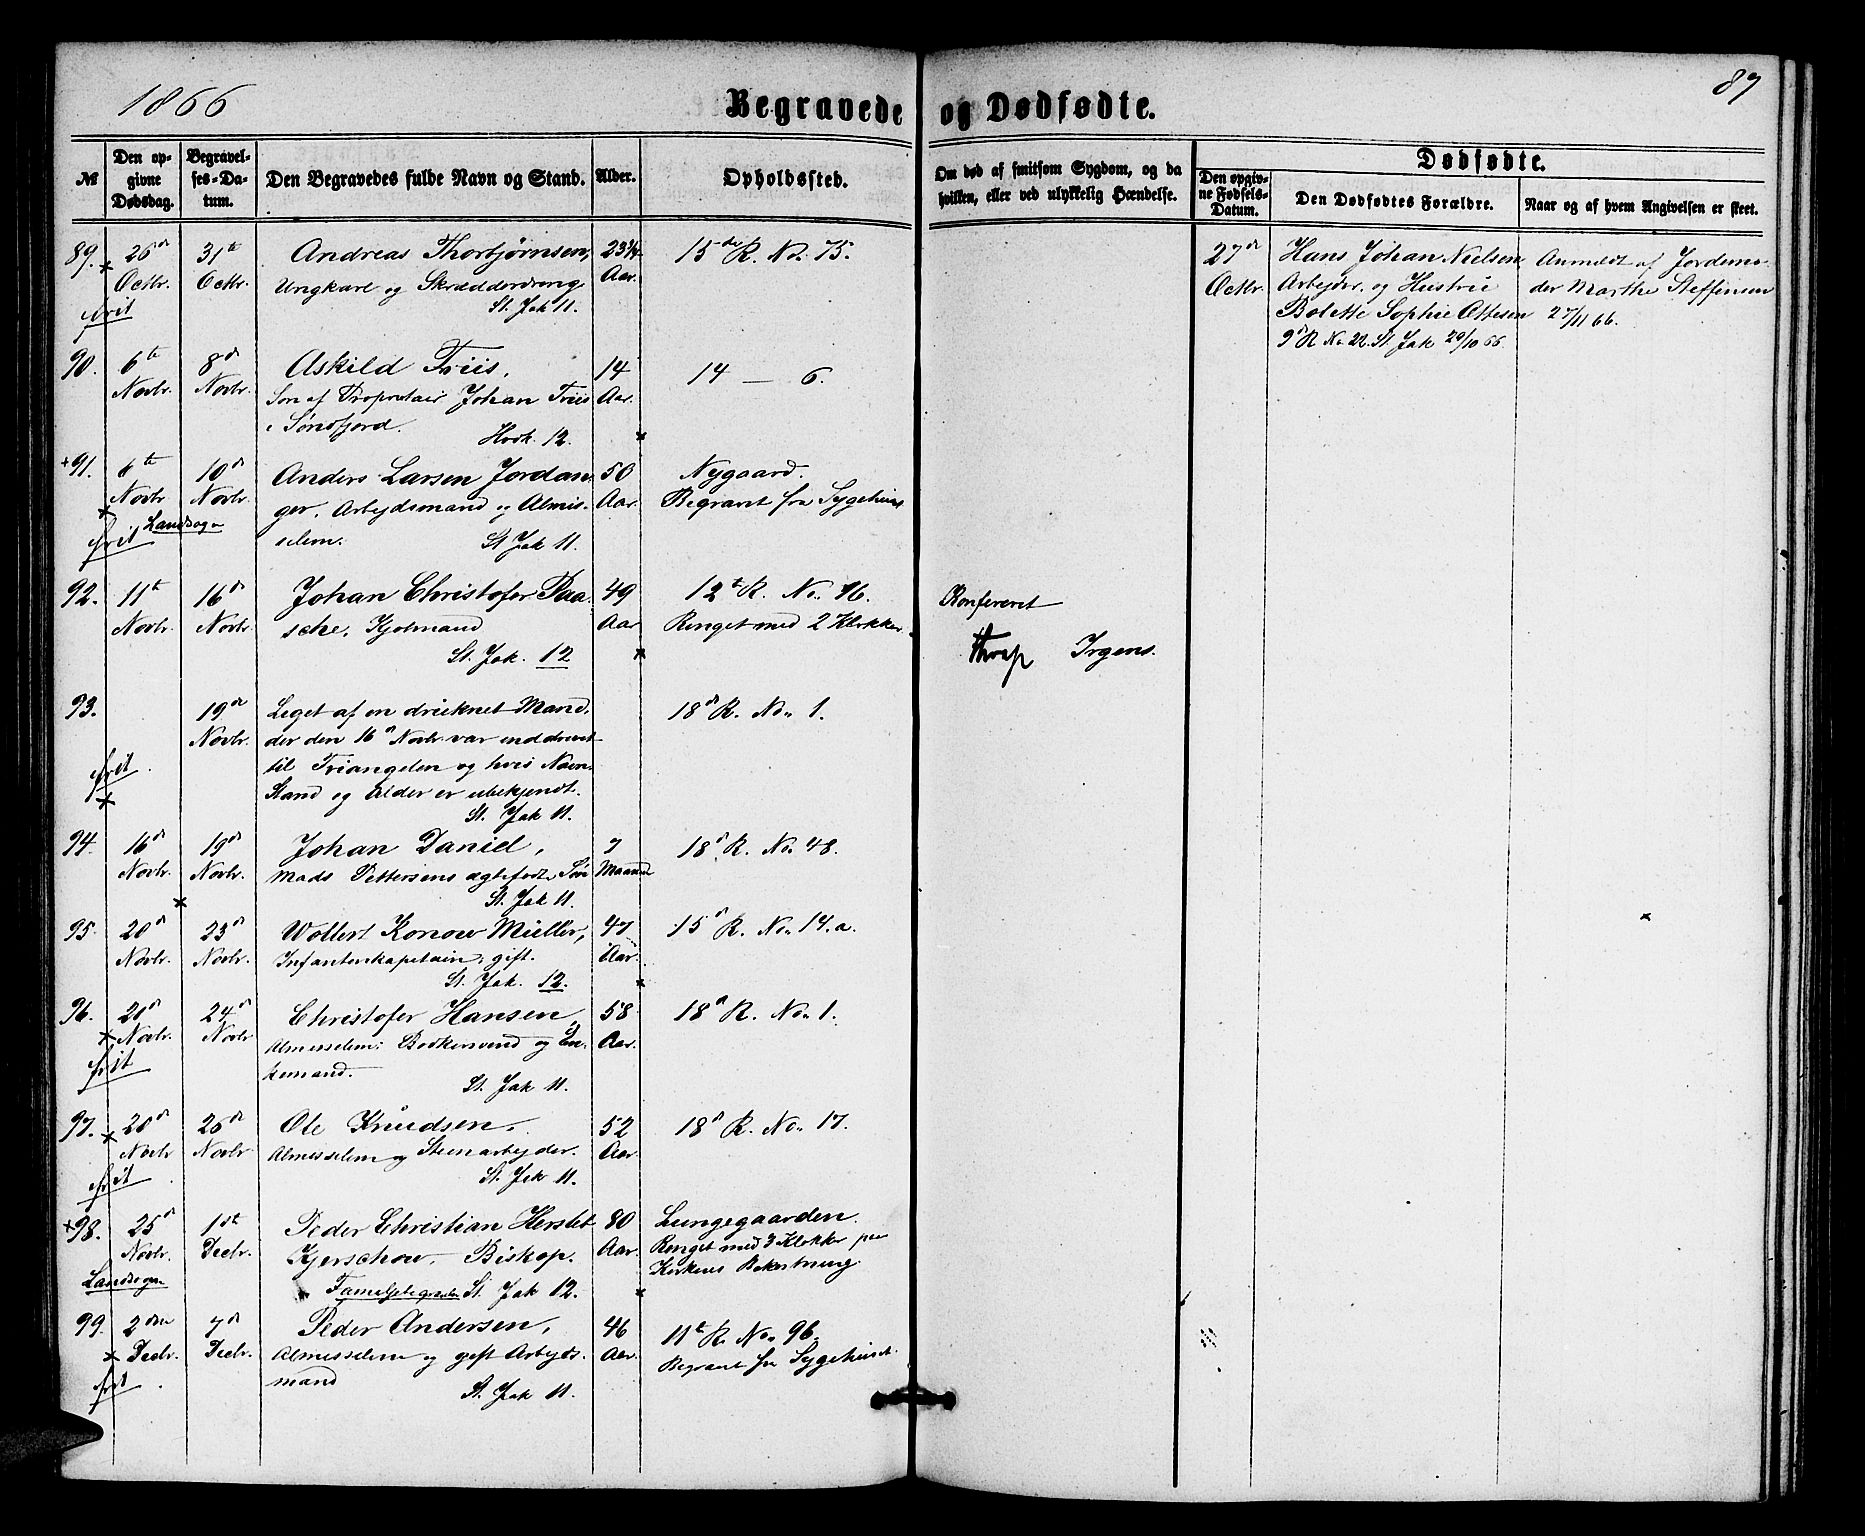 1866
Begravede og Dødfødte.
87
№
Den opgivne Dødsdag.
Begravelses-Datum.
Den Begravedes fulde Navn og Stand.
Alder.
Opholdssted.
Om død af smitsom Sygdom, og da hvilken, eller ved ulykkelig Hændelse.
Dødfødte.
Den opgivne Fødsels-Datum.
Den Dødfødtes Forældre.
Naar og af hvem Angivelsen er skeet.
89. 26de 31te Andreas Thorbjørnsen, 23¼ 15de R. No. 75.
Octbr. Octbr. Ungkarl og Skrædderdreng Aar.
frit St. Jak 11.
27de Hans Johan Nielsen Anmeldt af Jordemo-
Octbr. Arbejder. og Hustru der Marthe Steffensen
Bolette Sophie Ottesen 27/11 66.
9d R No 22. St. Jak 29/10 66.
90. 6te 8de Askild Friis, 14 14 — 6.
Novbr. Novbr. Søn af Proprietair Johan Friis Aar.
i Søndfjord. Hosk. 12.
+91. 6te 10de Anders Larsen Jordan- 50 Nygaard.
Novbr Novbr. ger, Arbejdsmand og Almis- Aar Begravet fra Sygehuset
frit Landsogn selem. St Jak 11.
92. 11te 16de Johan Christofer Paa- 49 12te R. No. 96.
Novbr. Novbr. sche, Kjolmand Aar Ringet med 2 Klokker.
St. Jak. 12
Konfereret
Thrap Irgens.
93. 19de Liget af en druknet Mand, 18d R. No. 1.
Novbr. der den 16d Novbr. var inddrevet
til Triangelen og hvis Navn,
frit. Stand og Alder er ubekjendt.
St. Jak 11.
94. 16de 19de Johan Daniel, 7 18d R. No. 48.
Novbr. Novbr. Mads Pettersens ægtefødte Søn Maaned
St. Jak 11.
95. 20d 23d Wollert Konow Müller, 47 15d R. No. 14.a.
Novbr. Novbr. Infanterikapetain, gift. Aar.
St. Jak. 12.
96. 20d 24d Christofer Hansen, 58 18d R. No. 1.
Novbr. Novbr Almisselem: Bødkersvend og En- Aar.
frit kemand. St. Jak 11.
97. 20d 26de Ole Knudsen, 52 18d R. No. 17.
Novbr Novbr Almisselem og Steenarbejder. Aar.
frit. St. Jak 11.
+98. 25d 1ste Peder Christian Hersleb 80 Lungegaarden.
Novbr. Decbr. Kjerschow, Biskop. Aar. Ringet med 3 Klokker paa
Landsogn Kirkens Bekostning.
Familjebegravelse St. Jak 12.
99. 2den 7de Peder Andersen, 46 11te R. No. 96.
Decbr. Decbr. Almisselem og gift Arbejds- Aar. Begravet fra Sygehuset.
frit. mand St. Jak 11.